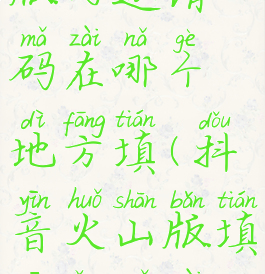 mǎ zài nǎ gè
码在哪个
dì fāng tián dǒu
地方填(抖
yīn huǒ shān bǎn tián
音火山版填